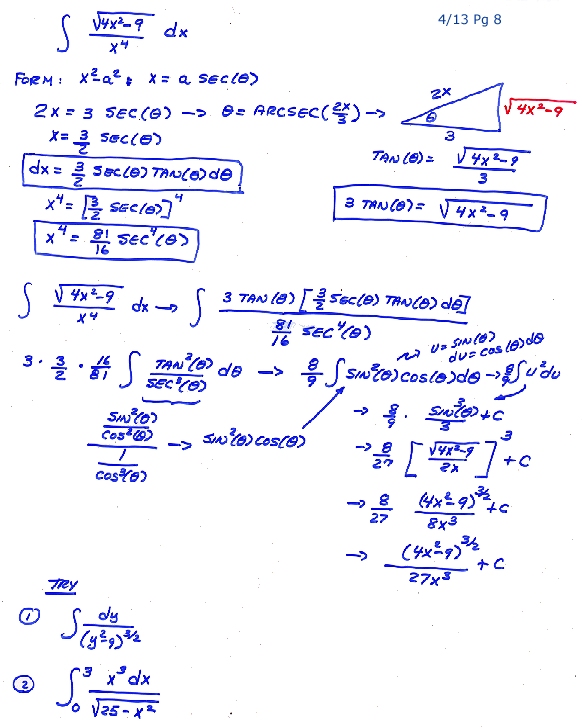 4/13 Pg 8
∫ √(4x²-9) / x⁴ dx
FORM: x²-a²; x = a SEC(θ)
2x = 3 SEC(θ) → θ = ARCSEC(2x/3) →
2x
θ
3
√(4x²-9)
x = 3/2 SEC(θ)
dx = 3/2 SEC(θ) TAN(θ) dθ
x⁴ = [3/2 SEC(θ)]⁴
x⁴ = 81/16 SEC⁴(θ)
TAN(θ) = √(4x²-9) / 3
3 TAN(θ) = √(4x²-9)
∫ √(4x²-9) / x⁴ dx → ∫ 3 TAN(θ) [3/2 SEC(θ) TAN(θ) dθ] / (81/16 SEC⁴(θ))
u = SIN(θ)
du = COS(θ) dθ
3 · 3/2 · 16/81 ∫ TAN²(θ) / SEC³(θ) dθ → 8/9 ∫ SIN²(θ) COS(θ) dθ → 8/9 ∫ u² du
(SIN²(θ) / COS²(θ)) / (1 / COS³(θ)) → SIN²(θ) COS(θ)
→ 8/9 · SIN³(θ) / 3 + C
→ 8/27 [√(4x²-9) / 2x]³ + C
→ 8/27 (4x²-9)^(3/2) / 8x³ + C
→ (4x²-9)^(3/2) / 27x³ + C
TRY
① ∫ dy / (y²-9)^(3/2)
② ∫₀³ x³ dx / √(25-x²)